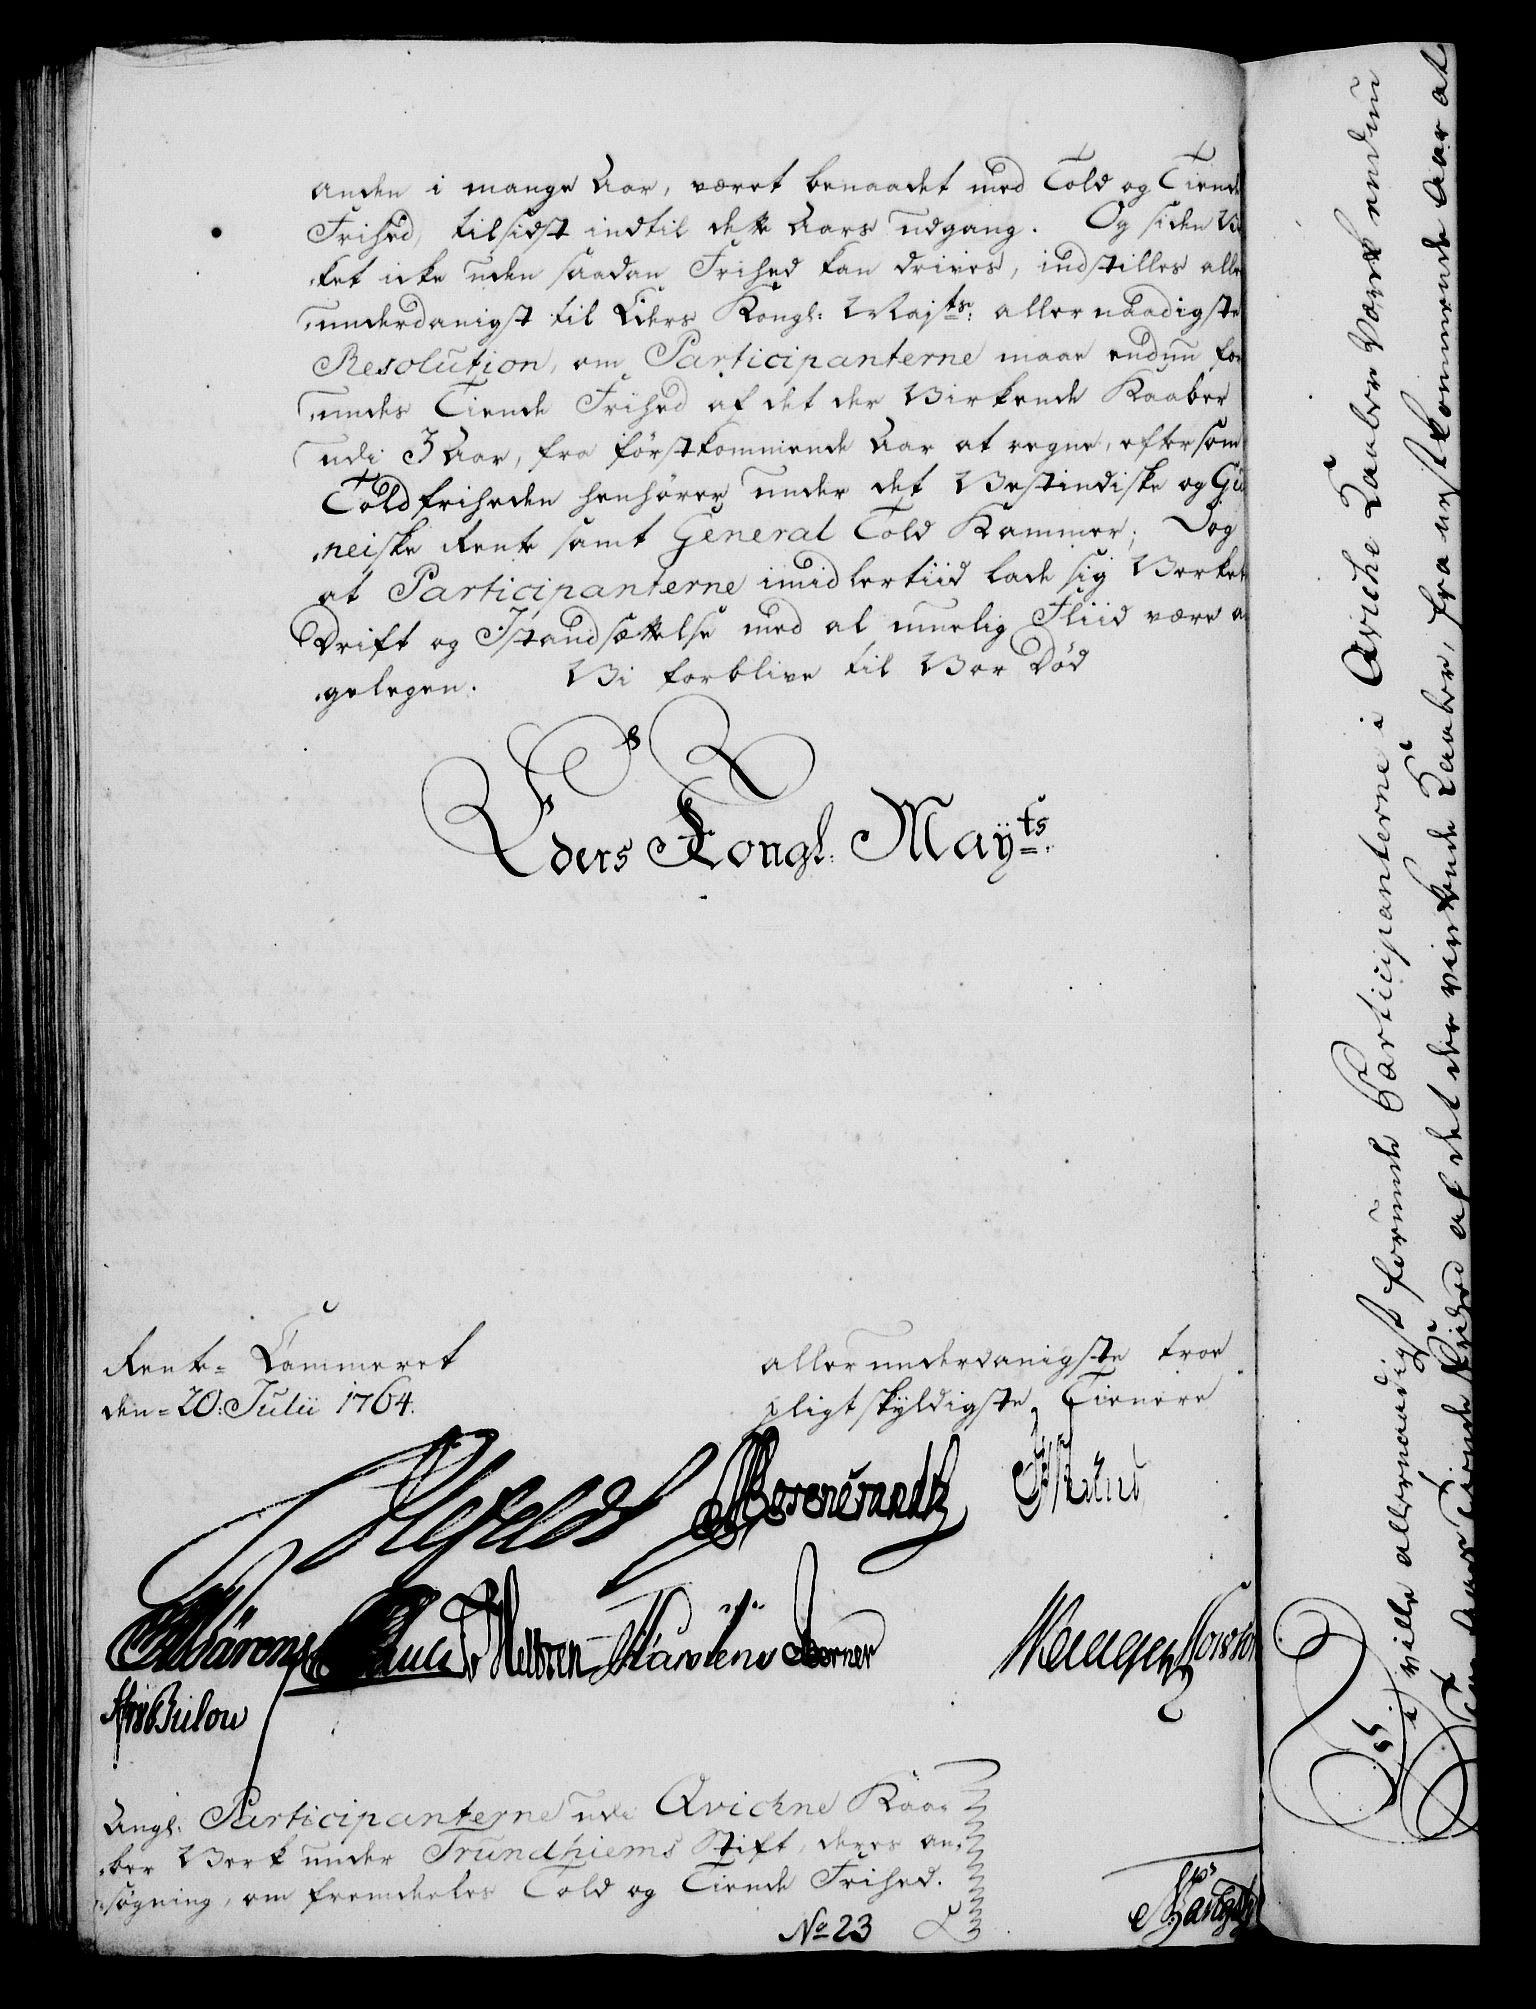 anden i mange Aar, været benaadet med Told og Tiende
Frihed, tilsidst indtil dette Aars udgang. Og siden
ket icke uden saadan Frihed kan drives, indstilles aller
underdanigst til Eders Kongl: Majts: allernaadigste
Resolution, om Participanterne maae endnu for
undes Tiende Frihed af det der Virkende Kaaber
udi 3 Aar, fra förstkommende Aar at regne, eftersom
Toldfriheden henhörer under det Vestindiske og Gui
neiske Rente samt General Told Kammer; Dog
at Participanterne imidlertiid lade sig Verkets
Drift og Istandsættelse med al muelig Fliid være an
gelegen. Vi forblive til Vor Död
Eders Kongl: Mayts:
Rente-Cammeret
den 20: Julii 1764.
allerunderdanigste troe
pligtskyldigste Tienere
Bülow
Angl: Participanterne udi Qvickne Kaa-
ber Verk under Trundhiems Stift, deres an-
søgning, om fremdeeles Told og Tiende Frihed.
No 23
Vi ville allernaadigst forunde Participanterne i Qvickne Kaaber Værk endnu
Aars Tiende Frihed af det der virkende Kaaber, fra nestkommende Aar at